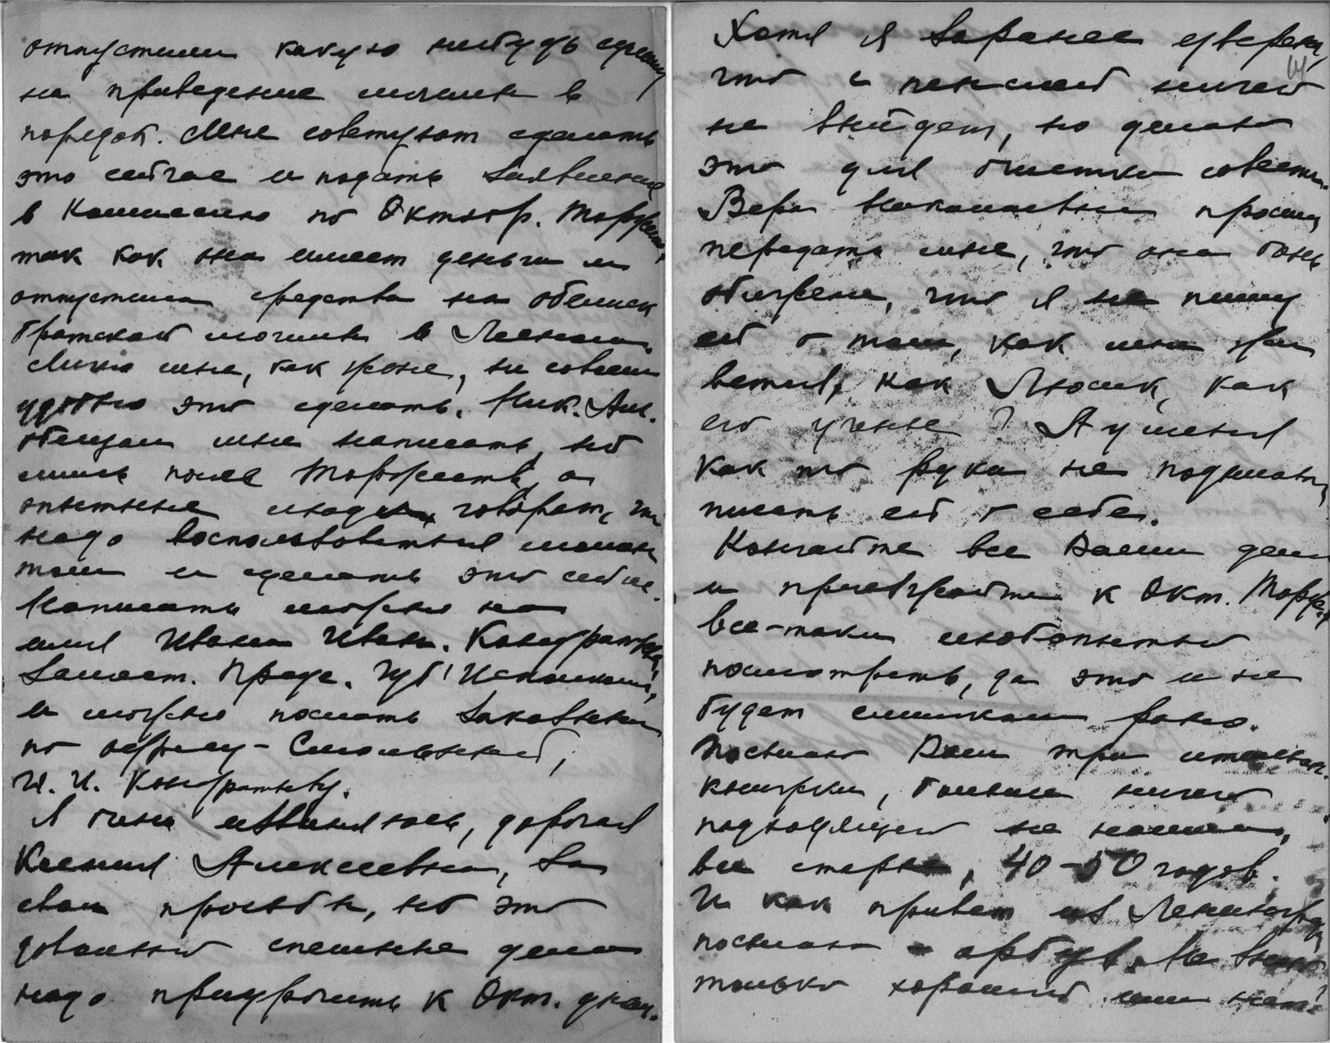 отпустили какую нибудь сумму
на приведение могилы в
порядок. Мне советуют сделать
это сейчас и подать заявление
в Комиссию по Октябр. Торжеств.,
так как она имеет деньги и
отпустила средства на обелиск
братской могилы в Лесном.
Лично мне, как жене, не совсем
удобно это сделать. Ник. Ал.
обещал мне написать, но
лишь после Торжеств, а
опытные люди, говорят, что
надо воспользоваться момен
том и сделать это сейчас.
Написать можно на
имя Ивана Иван. Кондратьева,
Замест. Предс. Губ. Исполкома,
и можно послать заказным
по адресу - Смольный,
И. И. Кондратьеву.
Я очень извиняюсь, дорогая
Ксения Алексеевна, за
свои просьбы, но это
довольно спешные дела
надо приурочить к Окт. дням.
Хотя я заранее уверена,
что с пенсией ничего
не выйдет, но делаю
это для очистки совести.
Вера Николаевна просила
передать мне, что она очень
обижена, что я не пишу
ей о том, как мне жи
вется, как Люсик, как
его ученье? А у меня
как то рука не поднималась
писать ей о себе.
Кончайте все Ваши дела
и приезжайте к Окт. Торж.,
все-таки любопытно
посмотреть, да это и не
будет слишком рано.
Посылаю Вам три итальян.
книжки, больше ничего
подходящего не нашла,
все старые, 40-50 годов.
И как привет из Ленинграда
посылаю арбуз. Не знаю
только хороший или нет?